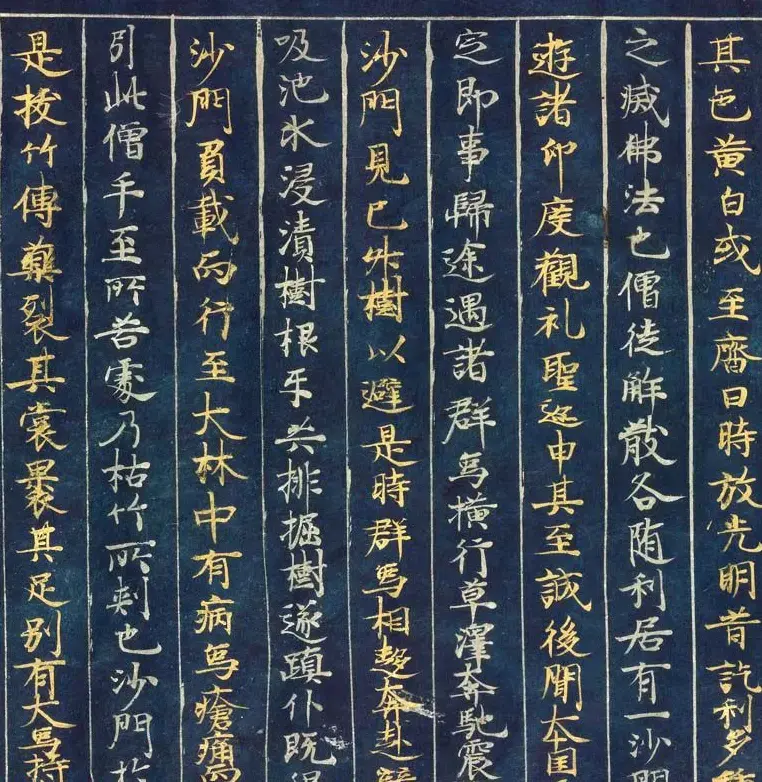 其色黄白或至齋日時放光明昔訖利多
之滅佛法也僧徒解散各随利居有一沙門
遊諸印度觀礼聖迹申其至誠後聞本国
定即事歸途遇諸群象橫行草澤奔馳震
沙門見已昇樹以避是時群象相趍奔赴
吸池水浸漬樹根互共排掘樹遂蹎仆既
沙門負載而行至大林中有病象瘡痛
引此僧手至所苦處乃枯竹所刺也沙門於
是拔竹傅藥裂其裳裹其足別有大象持